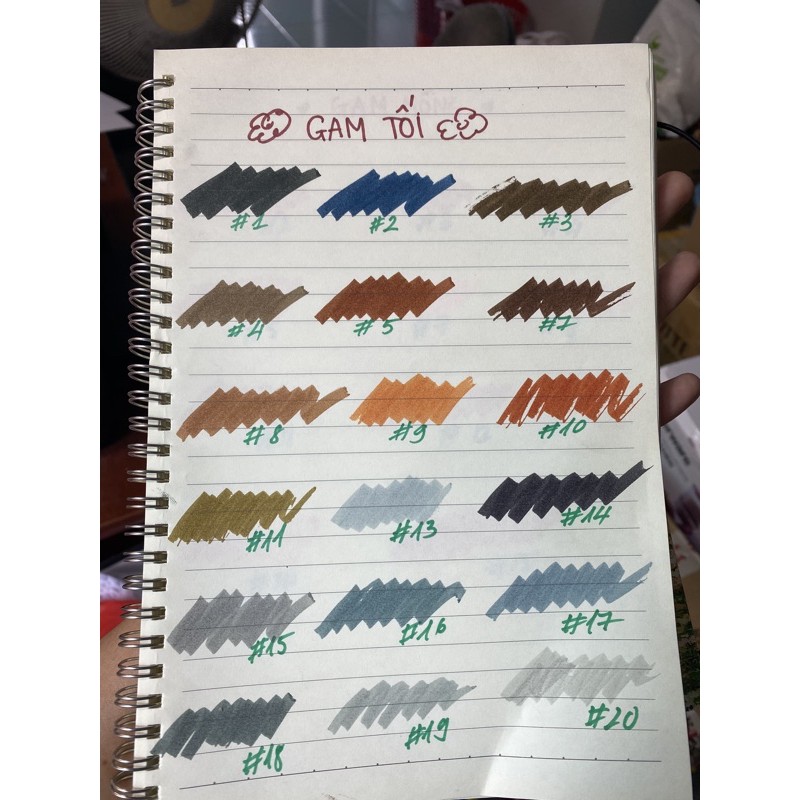 GAM TỐI
#1 #2 #3
#4 #5 #7
#8 #9 #10
#11 #13 #14
#15 #16 #17
#18 #19 #20